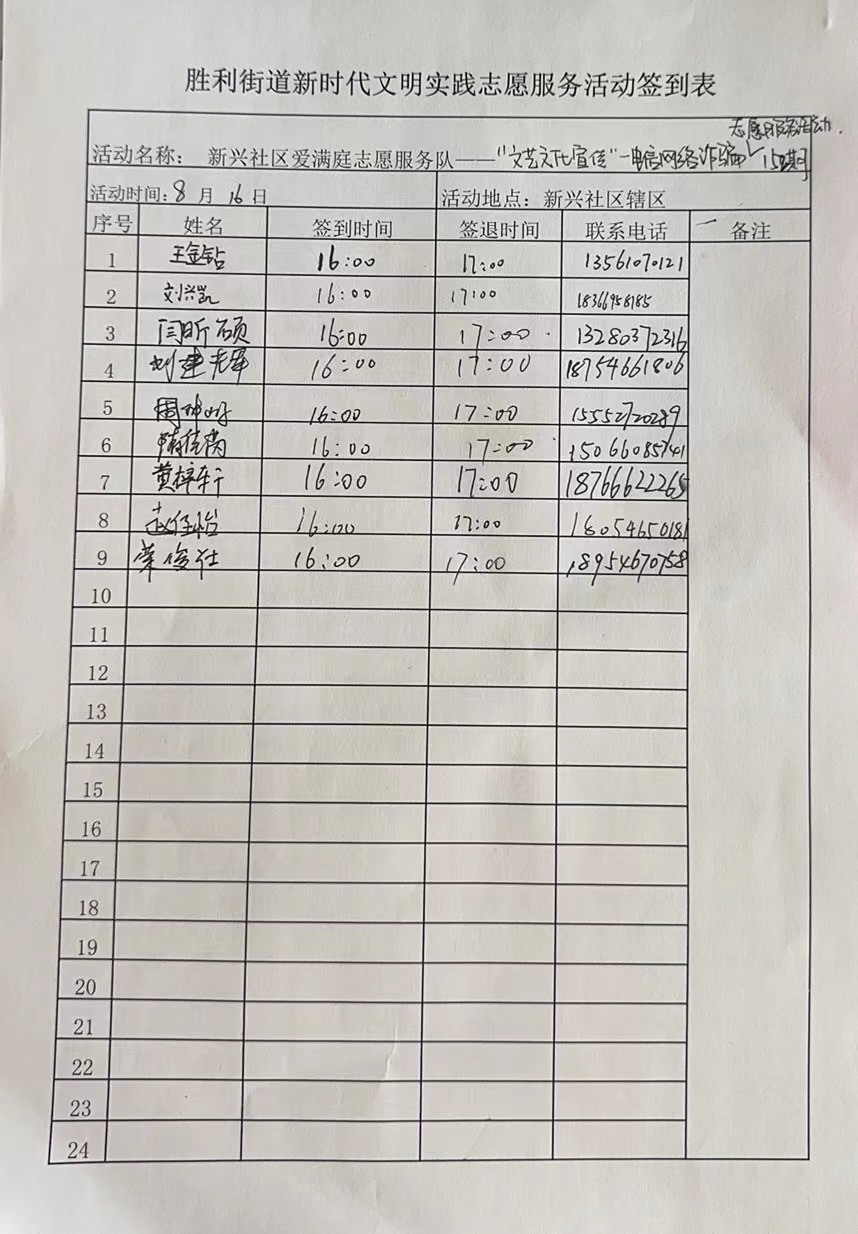 胜利街道新时代文明实践志愿服务活动签到表
志愿服务活动.
活动名称： 新兴社区爱满庭志愿服务队——“文艺文化宣传”-电信网络诈骗 15期
活动时间：8月16日 活动地点：新兴社区辖区
序号 姓名 签到时间 签退时间 联系电话 备注
1 王金钻 16:00 17:00 13561070121
2 刘兴凯 16:00 17:00 18366958185
3 闫昕硕 16:00 17:00 13280372316
4 刘建 16:00 17:00 18754661806
5 周 16:00 17:00 15552720289
6 16:00 17:00 15066085741
7 黄梓轩 16:00 17:00 18766622265
8 赵佳怡 16:00 17:00 18054650181
9 荣俊仕 16:00 17:00 18954670758
10
11
12
13
14
15
16
17
18
19
20
21
22
23
24